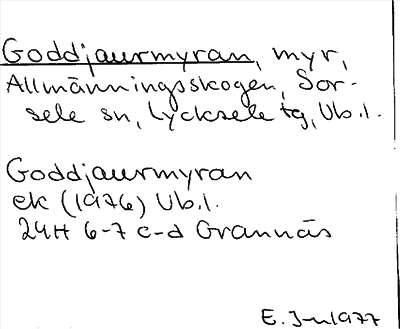 Goddjaurmyran, myr,
Allmänningsskogen, Sor-
sele sn, Lycksele tg, Vb.l.
Goddjaurmyran
ek (1976) Vb.l.
24H 6-7 c-d Grannäs
E. J-n 1977